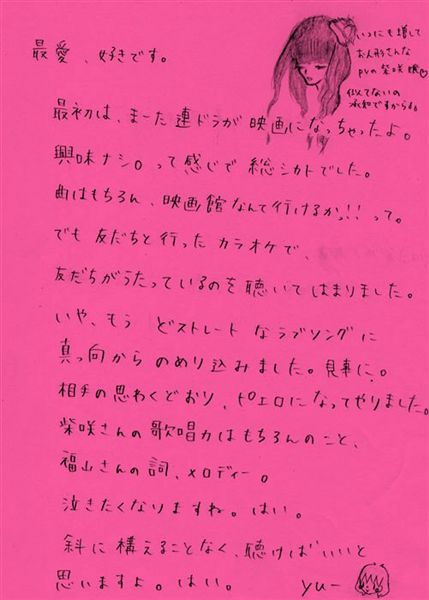 最愛、好きです。
いつにも増して
お人形さんな
PVの柴咲嬢♡
似てないの
承知ですからね
最初は、まーた連ドラが映画になっちゃったよ。
興味ナシ。って感じで総シカトでした。
曲はもちろん、映画館なんて行けるかっ!!って。
でも友だちと行ったカラオケで、
友だちがうたっているのを聴いてはまりました。
いや、もう どストレートなラブソングに
真っ向からのめり込みました。見事に。
相手の思わくどおり、ピエロになってやりました。
柴咲さんの歌唱力はもちろんのこと、
福山さんの詞、メロディー。
泣きたくなりますね。はい。
斜に構えることなく、聴けばいいと
思いますよ。はい。 yuー